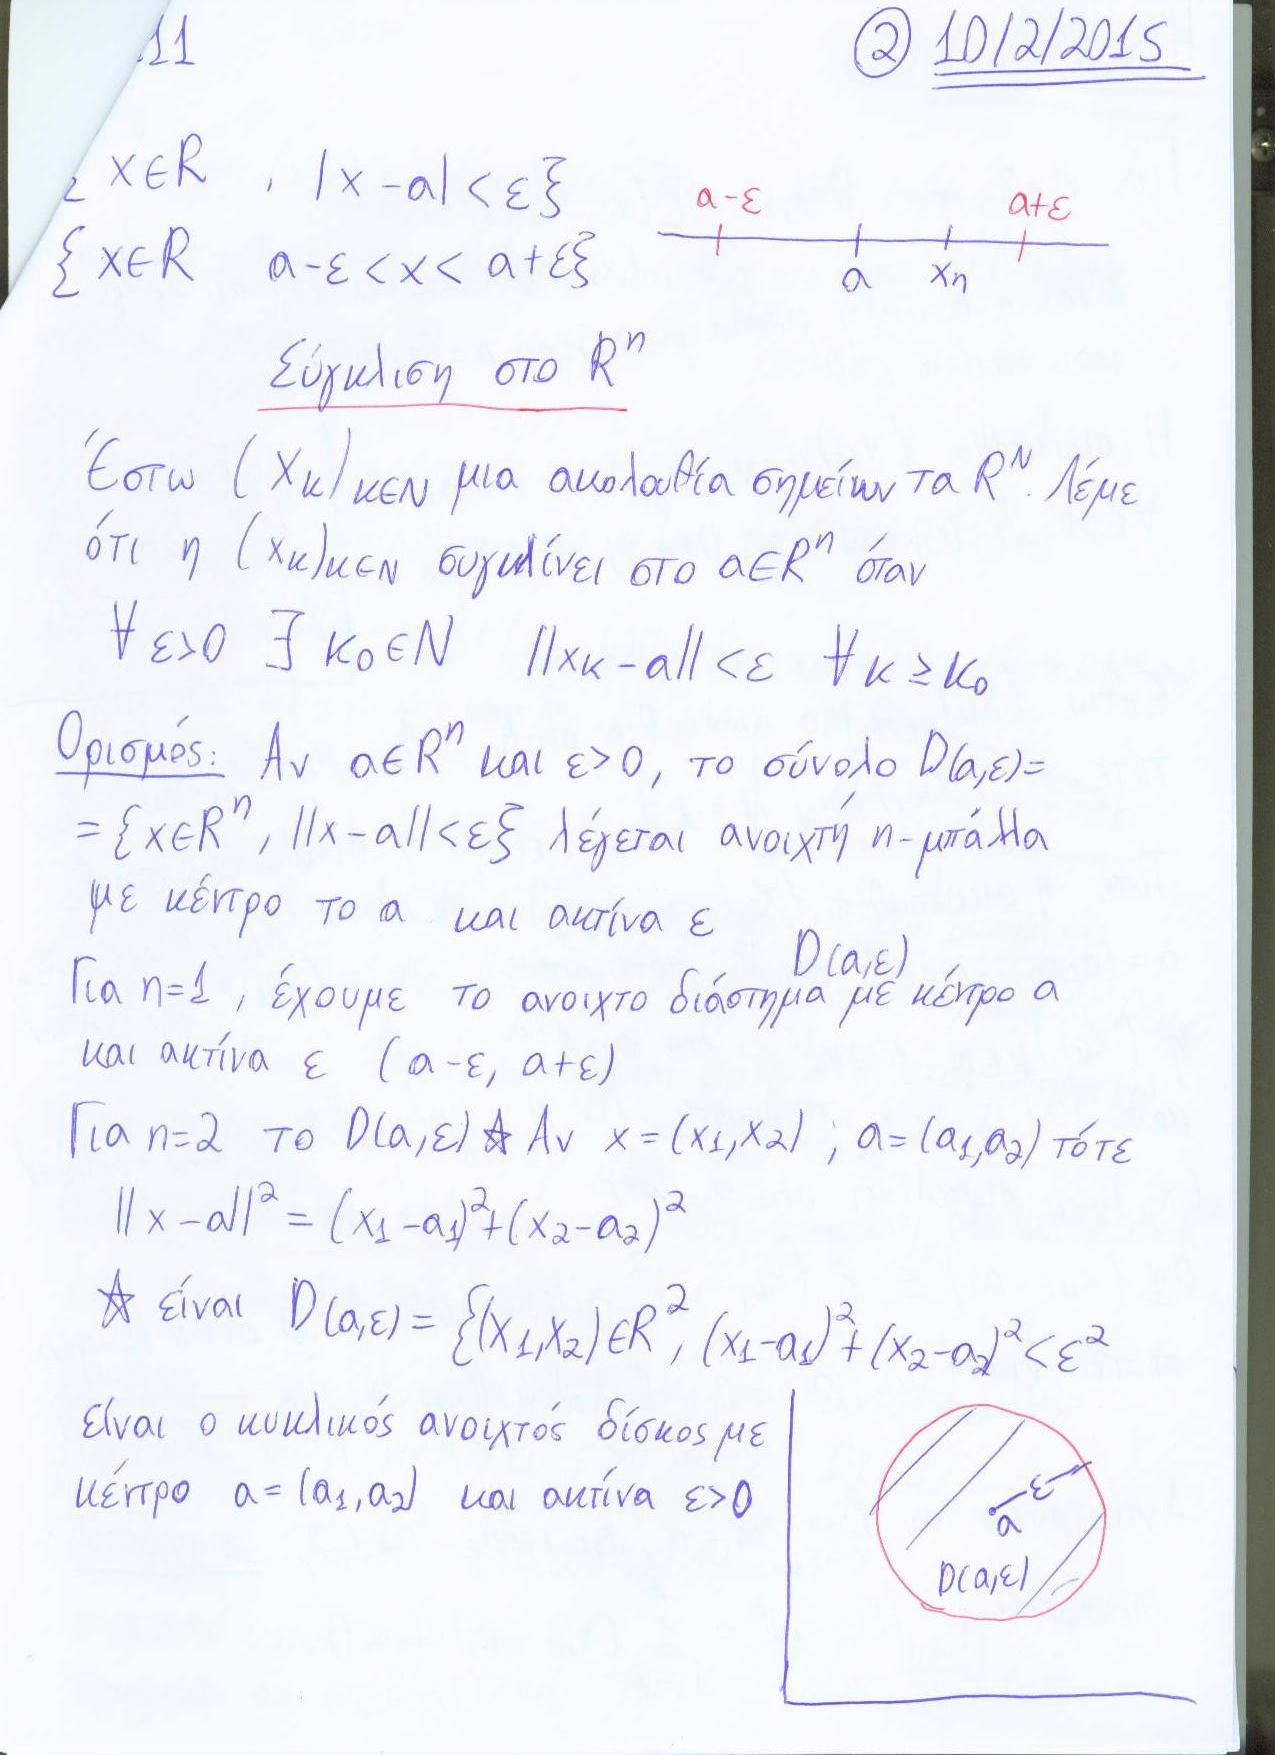 11 ② 10/2/2015
{ x∈R , |x-a|<ε}
{ x∈R a-ε<x<a+ε}
a-ε a+ε
a xₙ
Σύγκλιση στο Rⁿ
Έστω (Xκ)κ∈N μια ακολουθία σημείων τα Rᴺ. Λέμε
ότι η (xκ)κ∈N συγκλίνει στο a∈Rⁿ όταν
∀ ε>0 ∃ κ₀∈N ||xκ-a||<ε ∀ κ≥κ₀
Ορισμός: Αν a∈Rⁿ και ε>0, το σύνολο D(a,ε)=
={x∈Rⁿ, ||x-a||<ε} λέγεται ανοιχτή n-μπάλλα
με κέντρο το a και ακτίνα ε
D(a,ε)
Για n=1, έχουμε το ανοιχτο διάστημα με κέντρο a
και ακτίνα ε (a-ε, a+ε)
Για n=2 το D(a,ε) ☆ Αν x=(x₁,x₂) ; a=(a₁,a₂) τότε
||x-a||²=(x₁-a₁)²+(x₂-a₂)²
☆ είναι D(a,ε)={(x₁,x₂)∈R², (x₁-a₁)²+(x₂-a₂)²<ε²
είναι ο κυκλικός ανοιχτός δίσκος με
κέντρο a=(a₁,a₂) και ακτίνα ε>0
ε
a
D(a,ε)